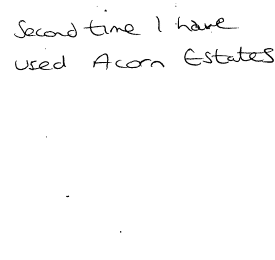 Second time I have
used Acorn Estates